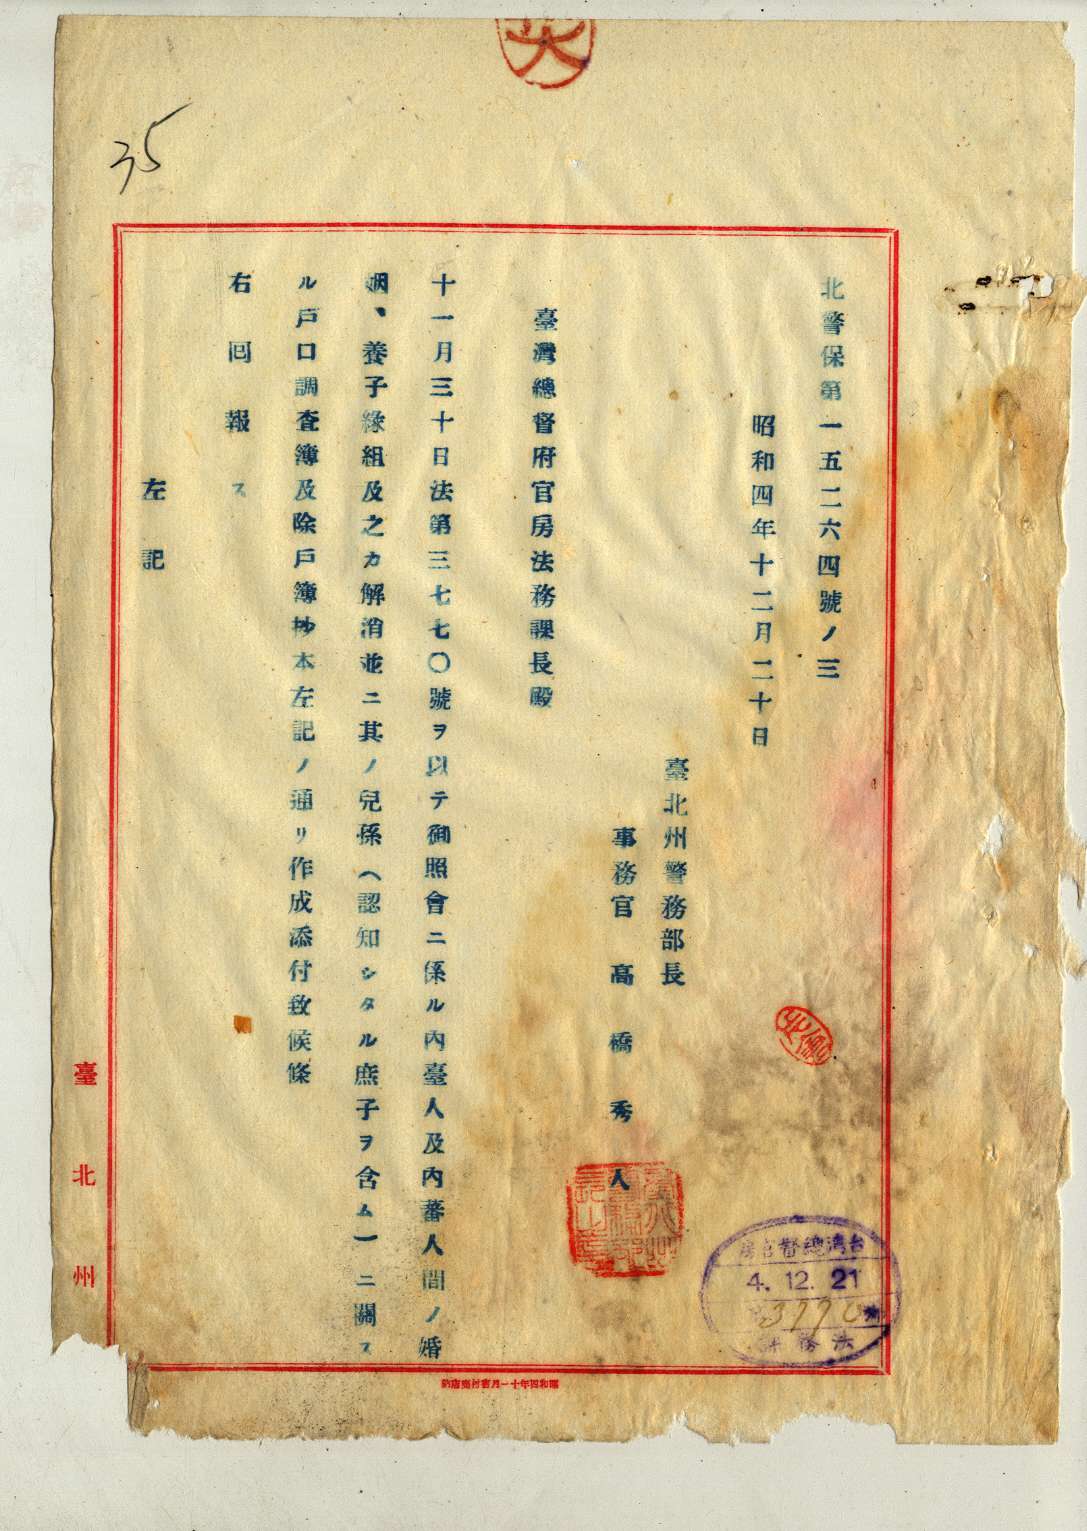 35
北警保第一五二六四號ノ三
昭和四年十二月二十日
臺北州警務部長
事務官 高橋秀人
臺灣總督府官房法務課長殿
十一月三十日法第三七七〇號ヲ以テ御照會ニ係ル內臺人及內蕃人間ノ婚
姻、養子緣組及之カ解消並ニ其ノ兒孫（認知シタル庶子ヲ含ム）ニ關ス
ル戶口調査簿及除戶簿抄本左記ノ通リ作成添付致候條
右回報ス
左記
臺北州
台灣總督官房
4.12.21
3770
法務
昭和四年十一月